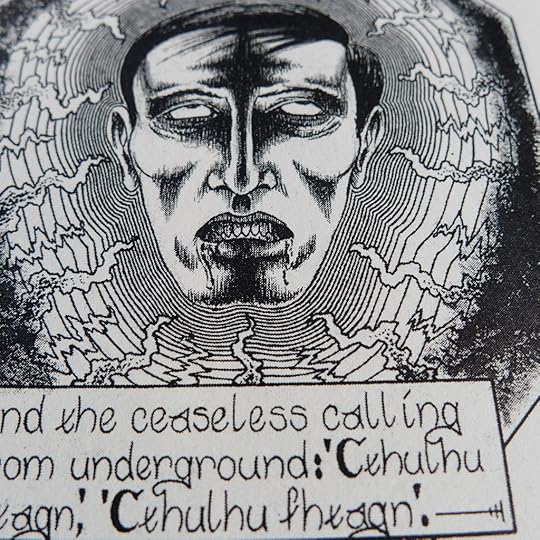 nd the ceaseless calling
rom underground:'Cthulhu
tagn,' 'Cthulhu fhtagn'.